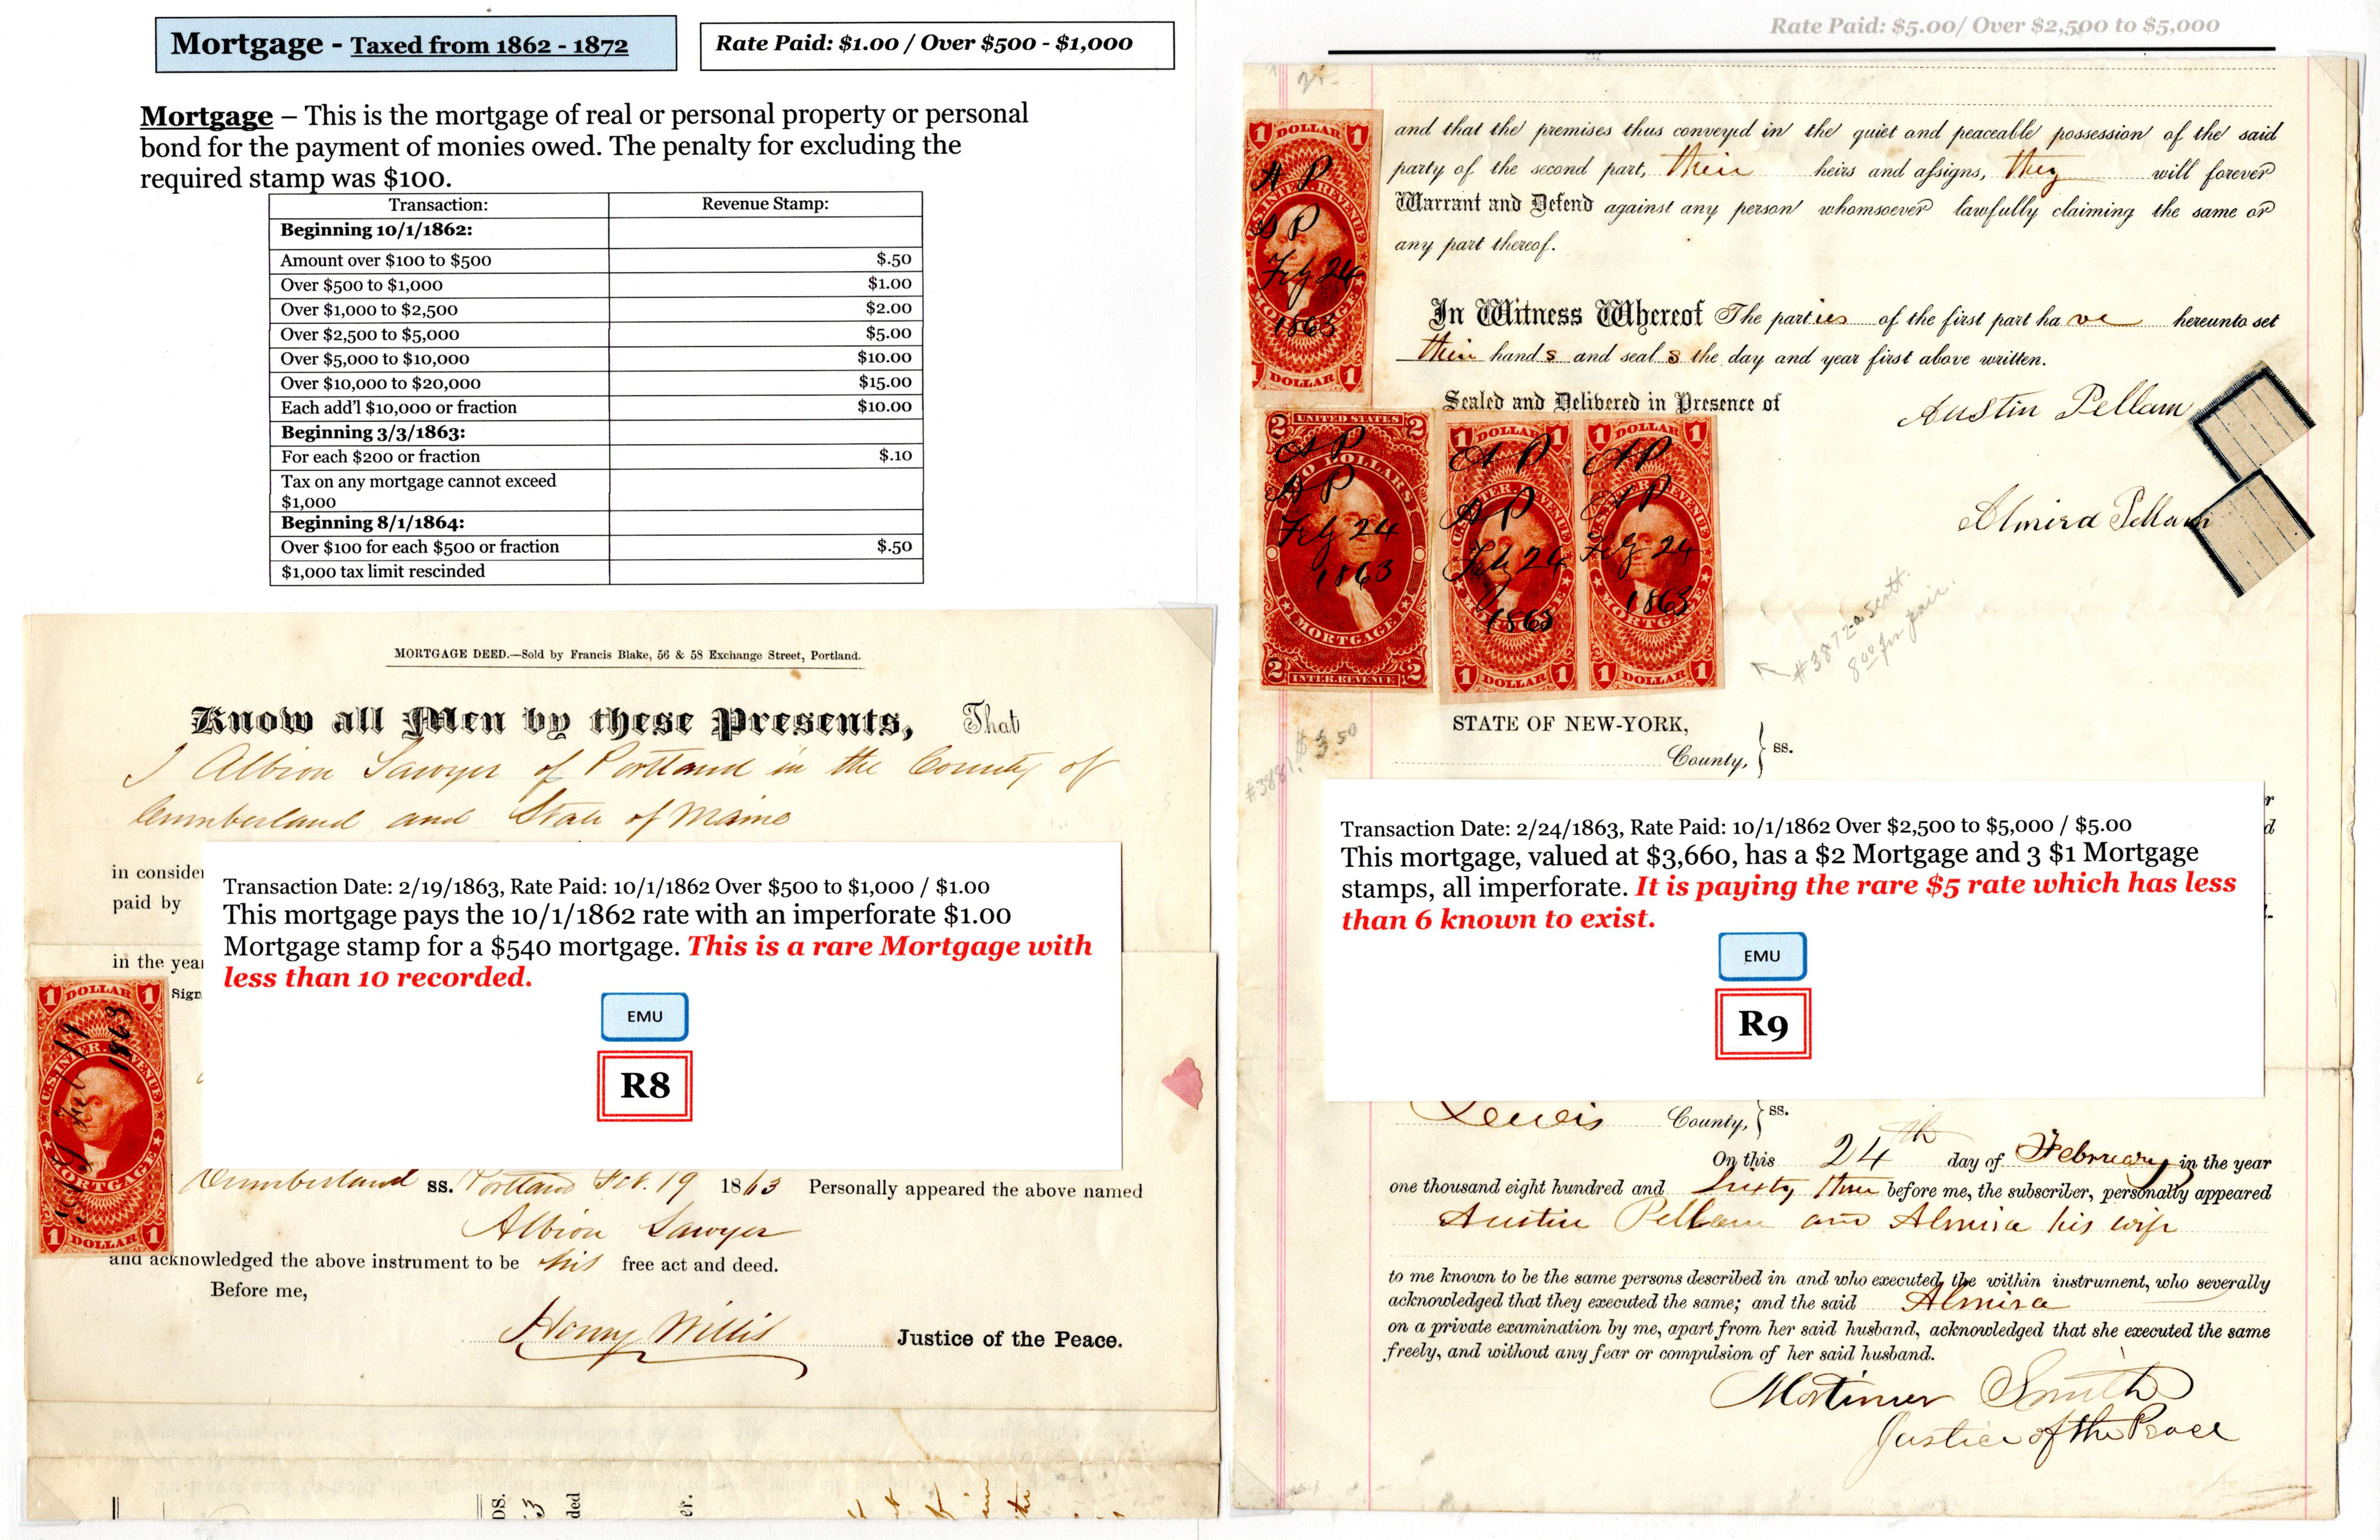 Mortgage - Taxed from 1862 - 1872
Rate Paid: $1.00 / Over $500 - $1,000
Mortgage – This is the mortgage of real or personal property or personal
bond for the payment of monies owed. The penalty for excluding the
required stamp was $100.
Transaction: Revenue Stamp:
Beginning 10/1/1862:
Amount over $100 to $500 $.50
Over $500 to $1,000 $1.00
Over $1,000 to $2,500 $2.00
Over $2,500 to $5,000 $5.00
Over $5,000 to $10,000 $10.00
Over $10,000 to $20,000 $15.00
Each add'l $10,000 or fraction $10.00
Beginning 3/3/1863:
For each $200 or fraction $.10
Tax on any mortgage cannot exceed
$1,000
Beginning 8/1/1864:
Over $100 for each $500 or fraction $.50
$1,000 tax limit rescinded
MORTGAGE DEED.—Sold by Francis Blake, 56 & 58 Exchange Street, Portland.
Know all Men by these Presents, That
I Albion Sawyer of Portland in the County of
Cumberland and State of Maine
in conside
paid by
in the yea
Sign
Transaction Date: 2/19/1863, Rate Paid: 10/1/1862 Over $500 to $1,000 / $1.00
This mortgage pays the 10/1/1862 rate with an imperforate $1.00
Mortgage stamp for a $540 mortgage. This is a rare Mortgage with
less than 10 recorded.
EMU
R8
1 DOLLAR 1
U.S. INTER. REVENUE
MORTGAGE
1 DOLLAR 1
Feb 19
1863
Cumberland ss. Portland Feb. 19 1863 Personally appeared the above named
Albion Sawyer
and acknowledged the above instrument to be his free act and deed.
Before me,
Henry Willis Justice of the Peace.
DS.
3
ded
er.
in
the
Rate Paid: $5.00/ Over $2,500 to $5,000
and that the premises thus conveyed in the quiet and peaceable possession of the said
party of the second part, their heirs and assigns, they will forever
Warrant and Defend against any person whomsoever lawfully claiming the same or
any part thereof.
In Witness Whereof The parties of the first part have hereunto set
their hands and seals the day and year first above written.
Sealed and Delivered in Presence of
Austin Pellam
Almira Pellam
1 DOLLAR 1
U.S. INTER. REVENUE
A P
A P
Feby 24
1863
MORTGAGE
1 DOLLAR 1
UNITED STATES
2 2
TWO DOLLARS
A P
A P
Feby 24
1863
MORTGAGE
2 INTER. REVENUE 2
1 DOLLAR 1
A P
A P
Feby 24
1863
MORTGAGE
1 DOLLAR 1
1 DOLLAR 1
A P
A P
Feby 24
1863
MORTGAGE
1 DOLLAR 1
#3872a Scott.
8.00 for pair.
#3881. $3.50
STATE OF NEW-YORK,
County, ss.
Transaction Date: 2/24/1863, Rate Paid: 10/1/1862 Over $2,500 to $5,000 / $5.00
This mortgage, valued at $3,660, has a $2 Mortgage and 3 $1 Mortgage
stamps, all imperforate. It is paying the rare $5 rate which has less
than 6 known to exist.
EMU
R9
Lewis County, ss.
On this 24th day of February in the year
one thousand eight hundred and Sixty three before me, the subscriber, personally appeared
Austin Pellam and Almira his wife
to me known to be the same persons described in and who executed the within instrument, who severally
acknowledged that they executed the same; and the said Almira
on a private examination by me, apart from her said husband, acknowledged that she executed the same
freely, and without any fear or compulsion of her said husband.
Mortimer Smith
Justice of the Peace